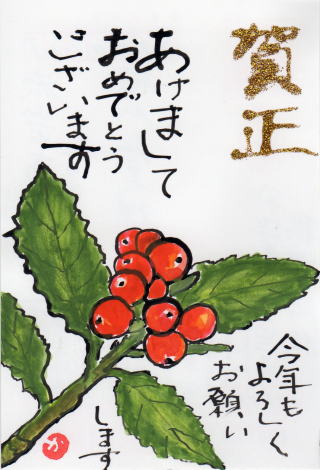 賀正
あけまして
おめでとう
ございます
今年も
よろしく
お願い
します
か